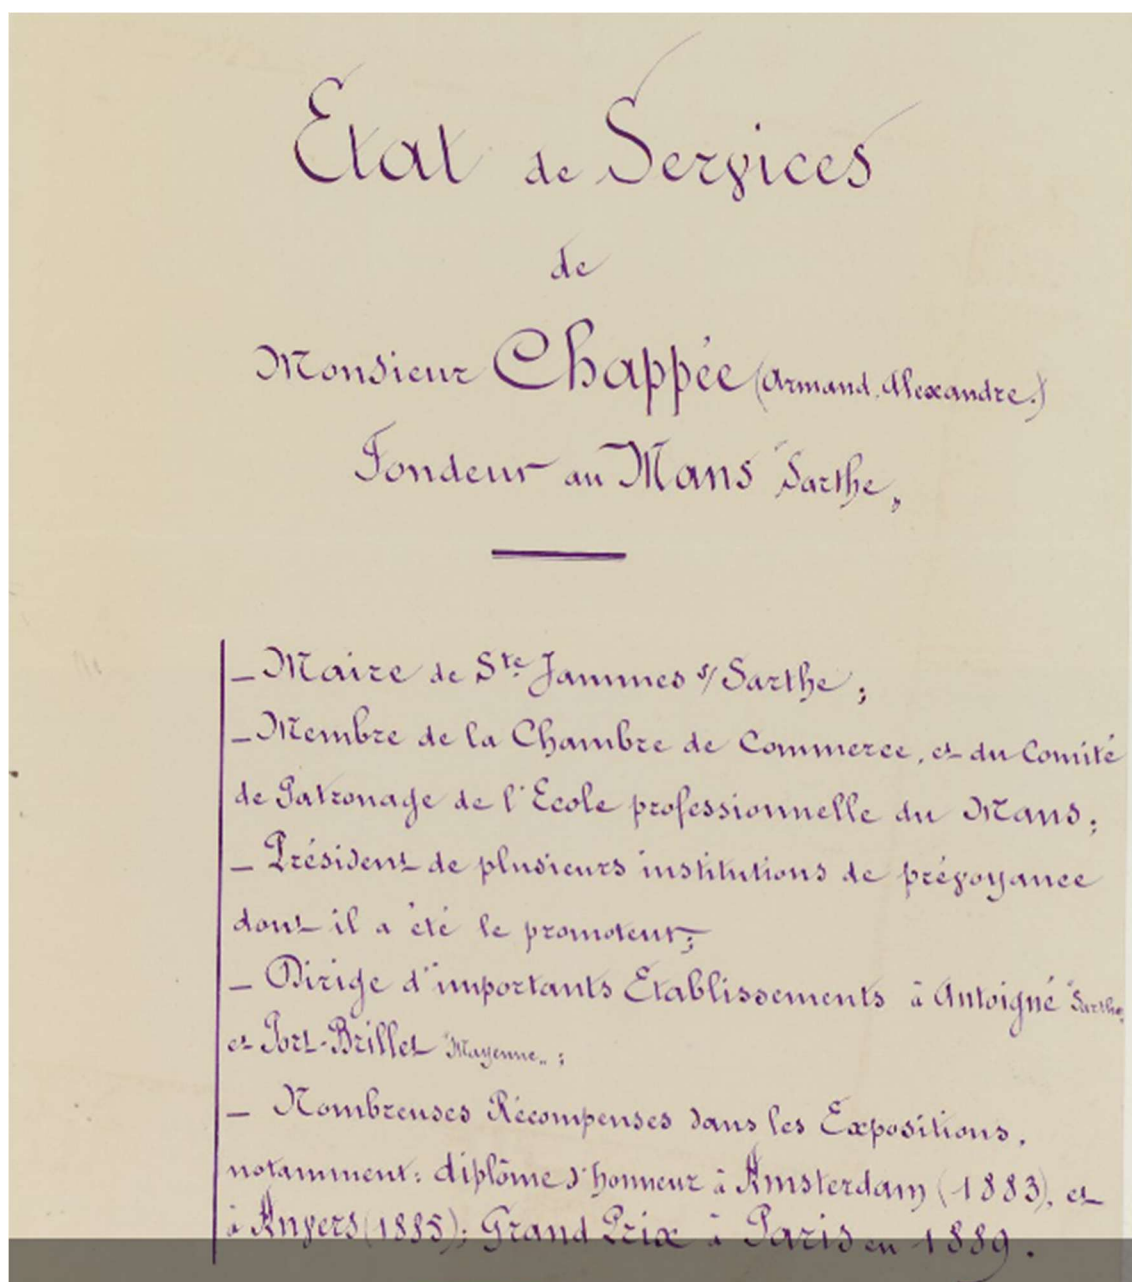 Etat de Services
de
Monsieur Chappée (Armand. Alexandre.)
Fondeur au Mans "Sarthe„
— Maire de Ste Jammes s/ Sarthe ;
— Membre de la Chambre de Commerce, et du Comité
de Patronage de l'Ecole professionnelle du Mans ;
— Président de plusieurs institutions de prévoyance
dont il a été le promoteur ;
— Dirige d'importants Etablissements à Antoigné "Sarthe„
et Port-Brillet "Mayenne„ ;
— Nombreuses Récompenses dans les Expositions,
notamment : diplôme d'honneur à Amsterdam (1883), et
à Angers (1885) ; Grand Prix à Paris en 1889.